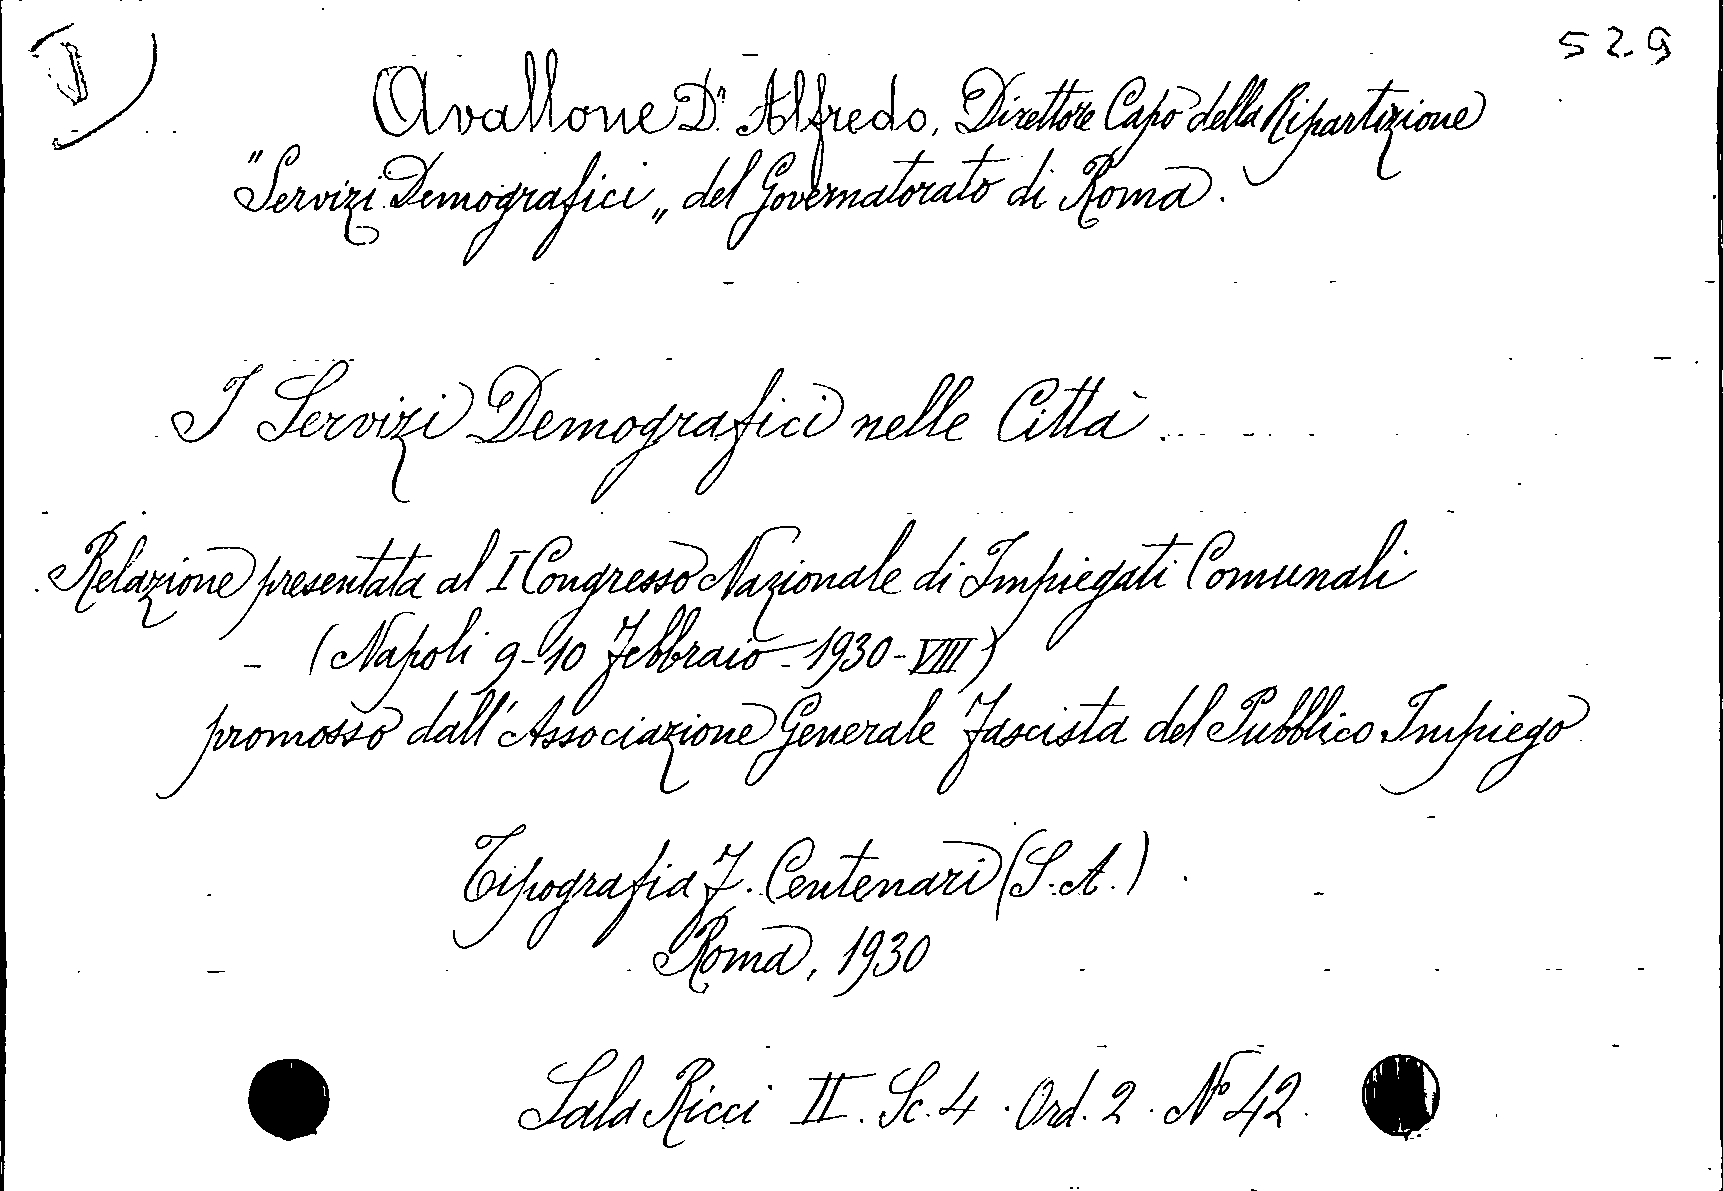 529
Avallone Dr. Alfredo, Direttore Capo della Ripartizione
"Servizi Demografici„ del Governatorato di Roma.
I Servizi Demografici nelle Città
Relazione presentata al I Congresso Nazionale di Impiegati Comunali
(Napoli 9-10 Febbraio - 1930 - VIII)
promosso dall'Associazione Generale Fascista del Pubblico Impiego
Tipografia F. Centenari (S.A.)
Roma, 1930
Sala Ricci II. Sc. 4 · Ord. 2 · No 42.